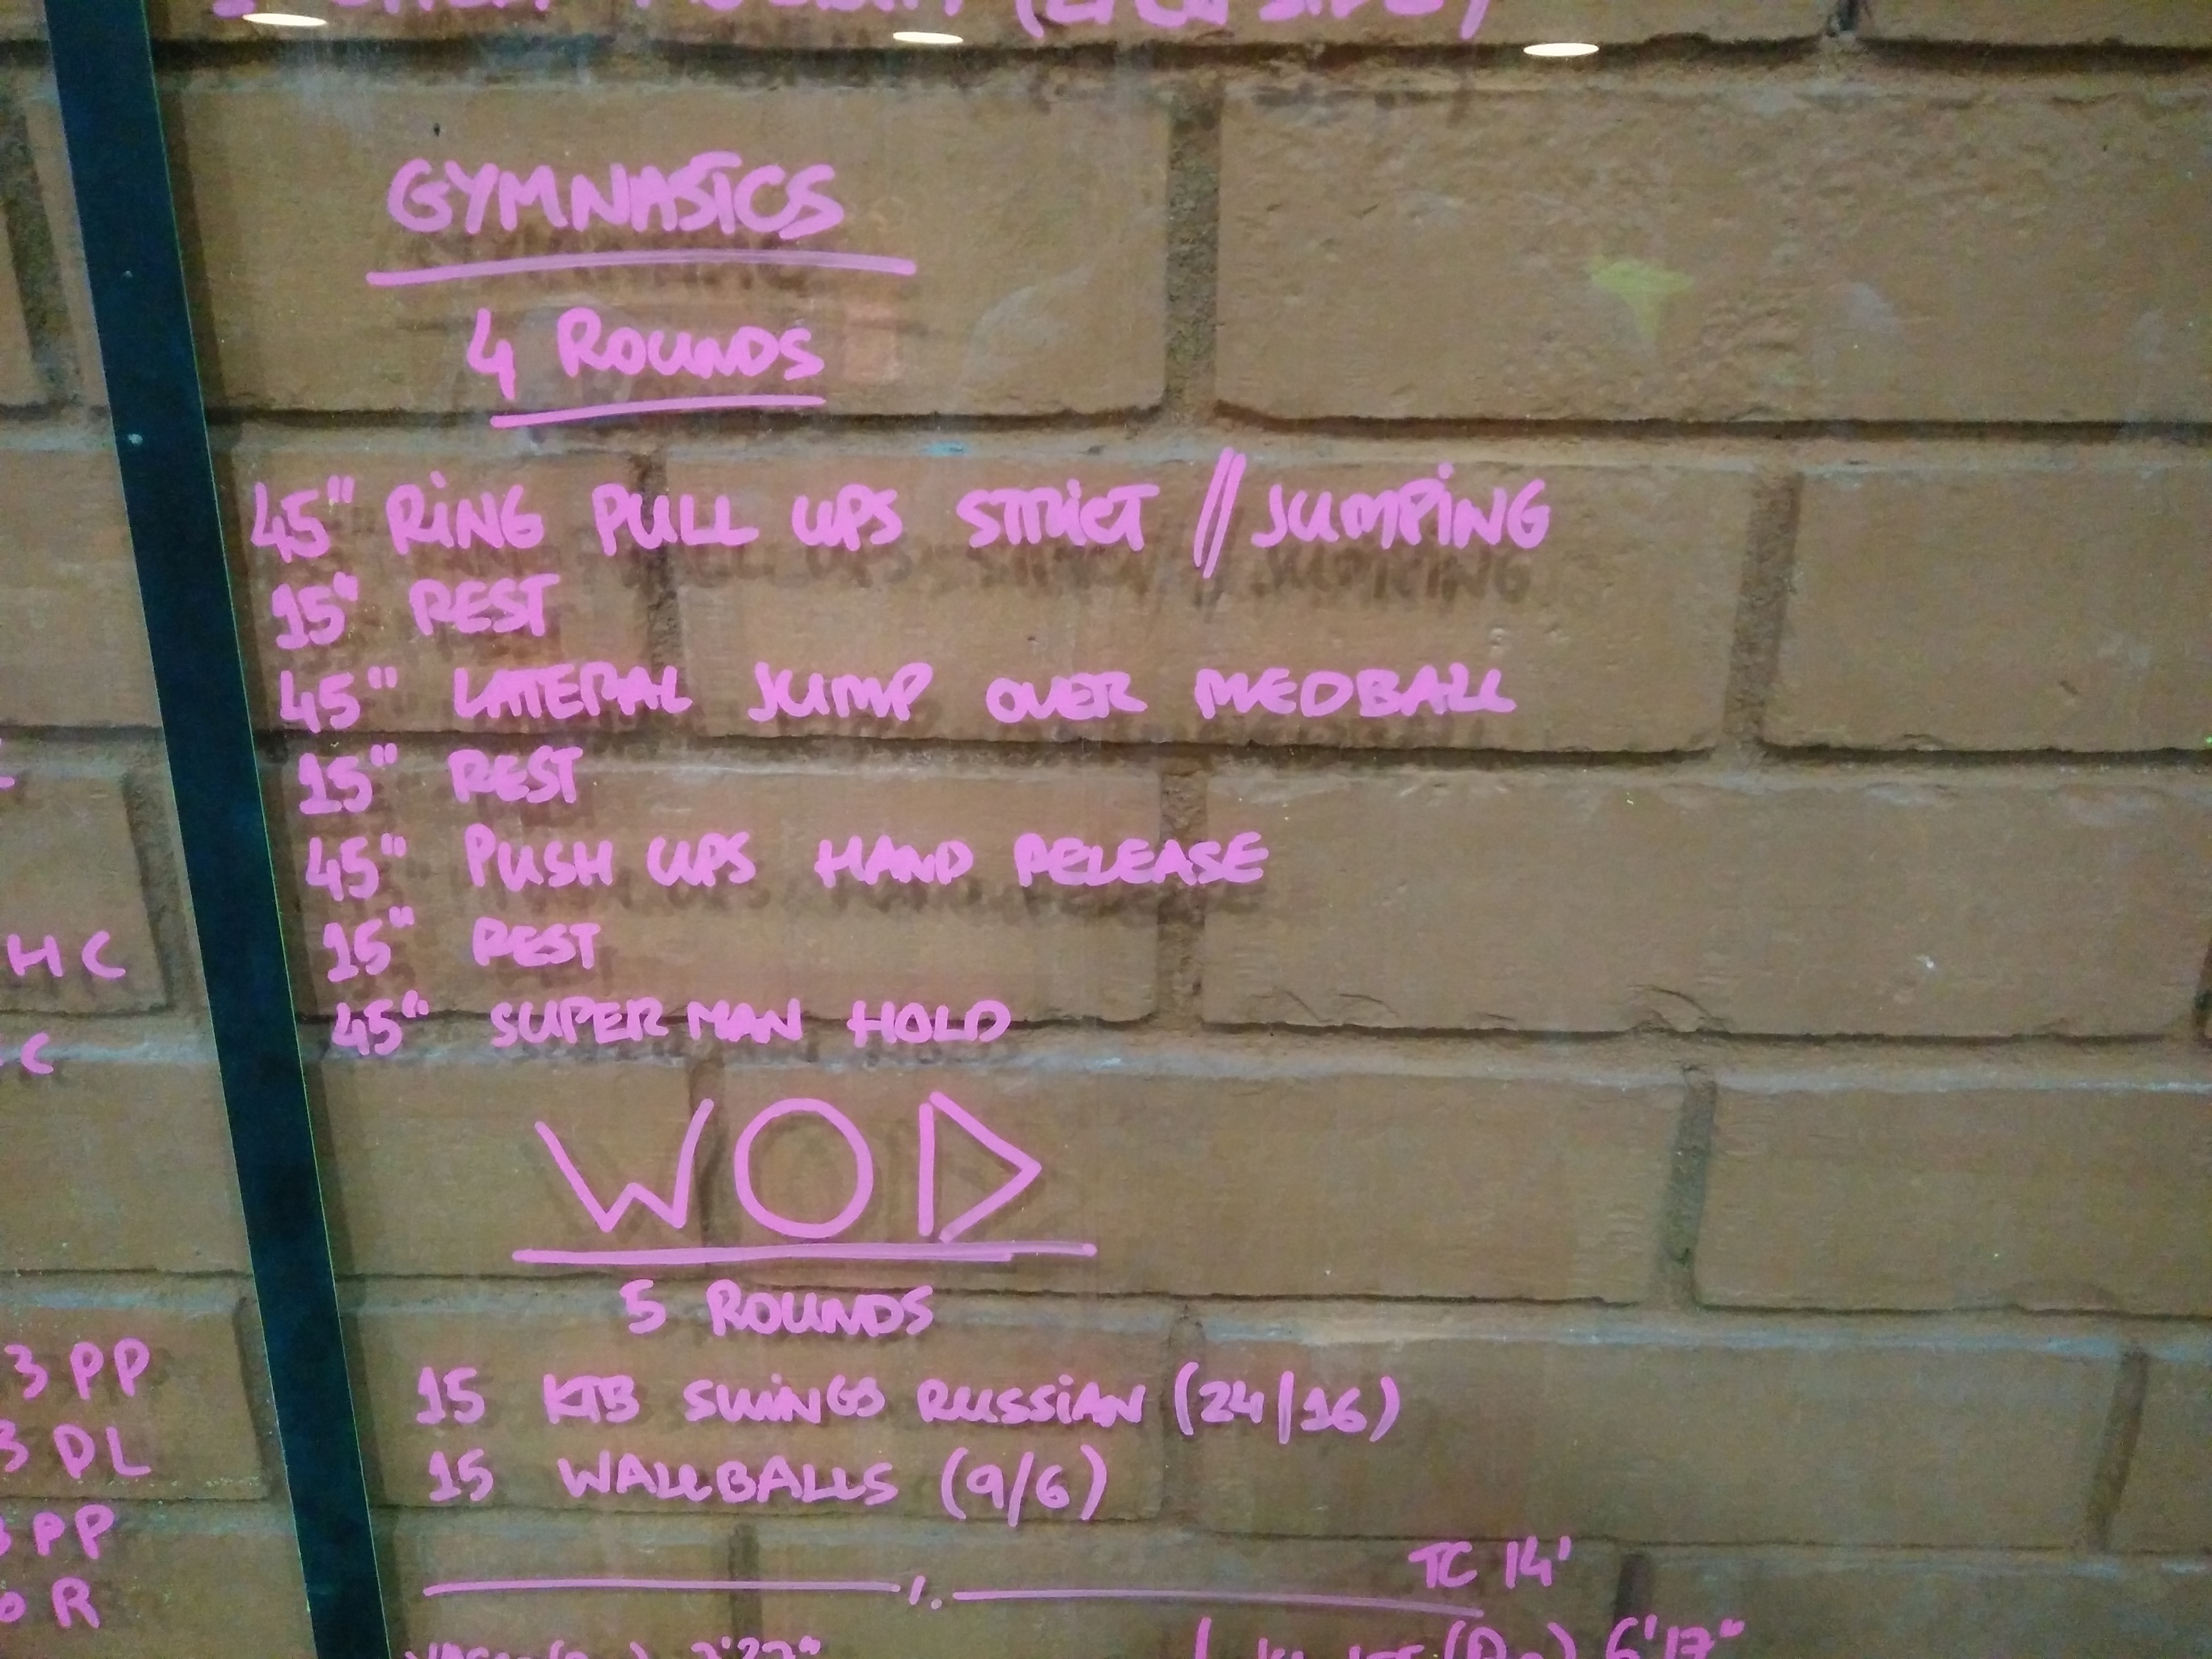 (EACH SIDE)
GYMNASTICS
4 ROUNDS
45" RING PULL UPS STRICT // JUMPING
15" REST
45" LATERAL JUMP OVER MEDBALL
15" REST
45" PUSH UPS HAND RELEASE
15" REST
45" SUPERMAN HOLD
WOD
5 ROUNDS
15 KTB SWINGS RUSSIAN (24/16)
15 WALLBALLS (9/6)
TC 14'
6'17"
HC
C
3 PP
3 DL
3 PP
R